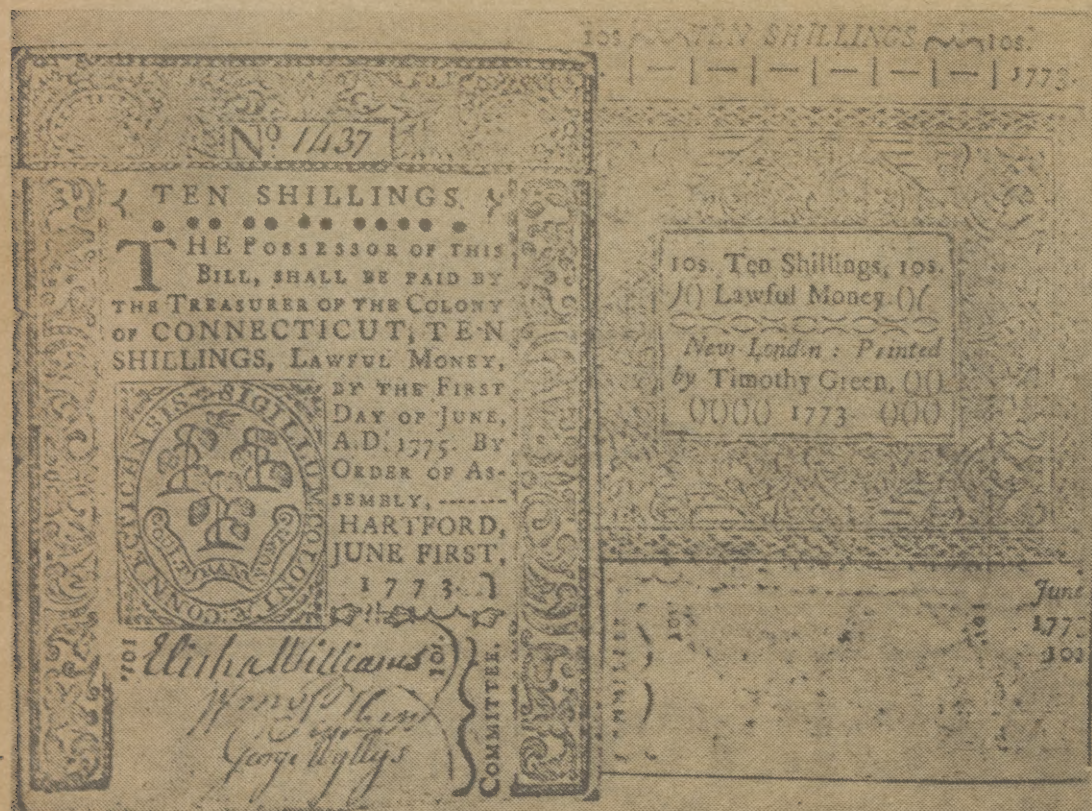 No. 1437
TEN SHILLINGS.
THE POSSESSOR OF THIS
BILL, SHALL BE PAID BY
THE TREASURER OF THE COLONY
OF CONNECTICUT, TEN
SHILLINGS, LAWFUL MONEY,
BY THE FIRST
DAY OF JUNE,
A.D. 1775. BY
ORDER OF AS-
SEMBLY,
HARTFORD,
JUNE FIRST,
1773.
SIGILLUM COLONIÆ CONNECTICENSIS
QUI TRANS
10s.
Elisha Williams
10s.
George Wyllys
COMMITTEE.
10s. TEN SHILLINGS 10s.
1773.
10s. Ten Shillings, 10s.
)() Lawful Money. ()(
New-London : Printed
by Timothy Green, ()()
()()()() 1773. ()()()
June
177
10s